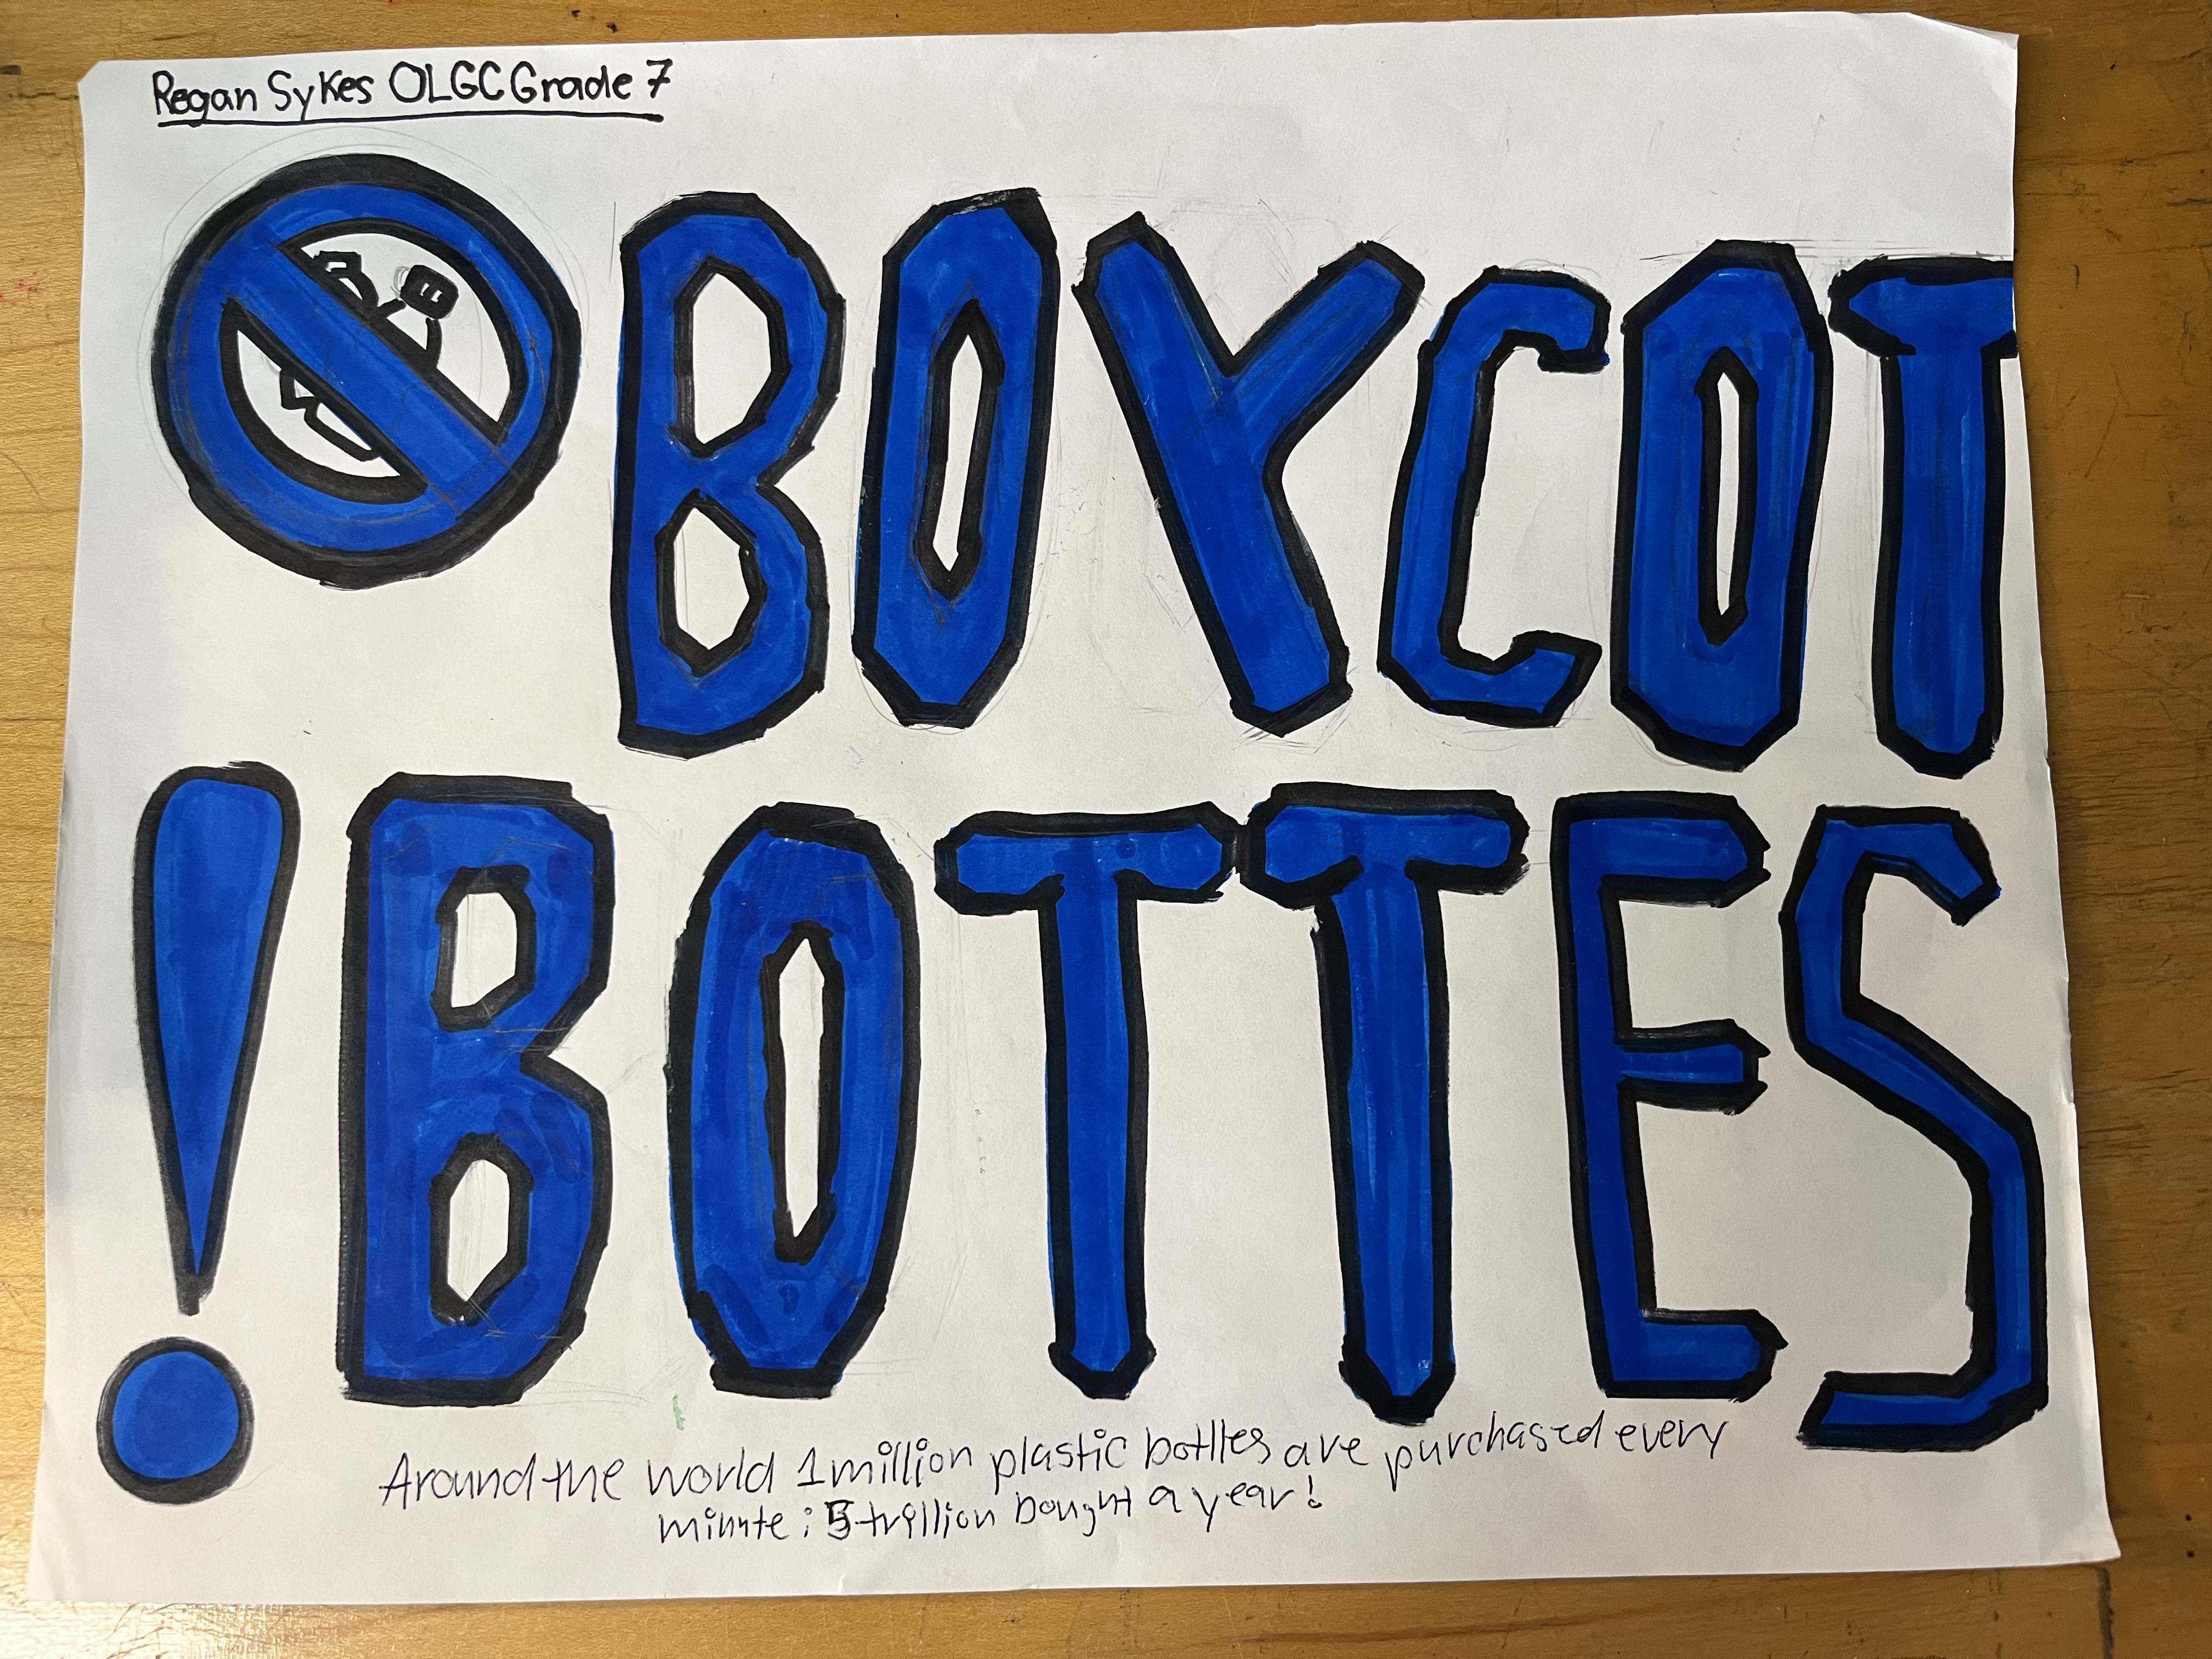 Regan Sykes OLGC Grade 7
BOYCOT
! BOTTES
Around the world 1 million plastic botlles are purchased every
minute : 5 trillion bought a year!